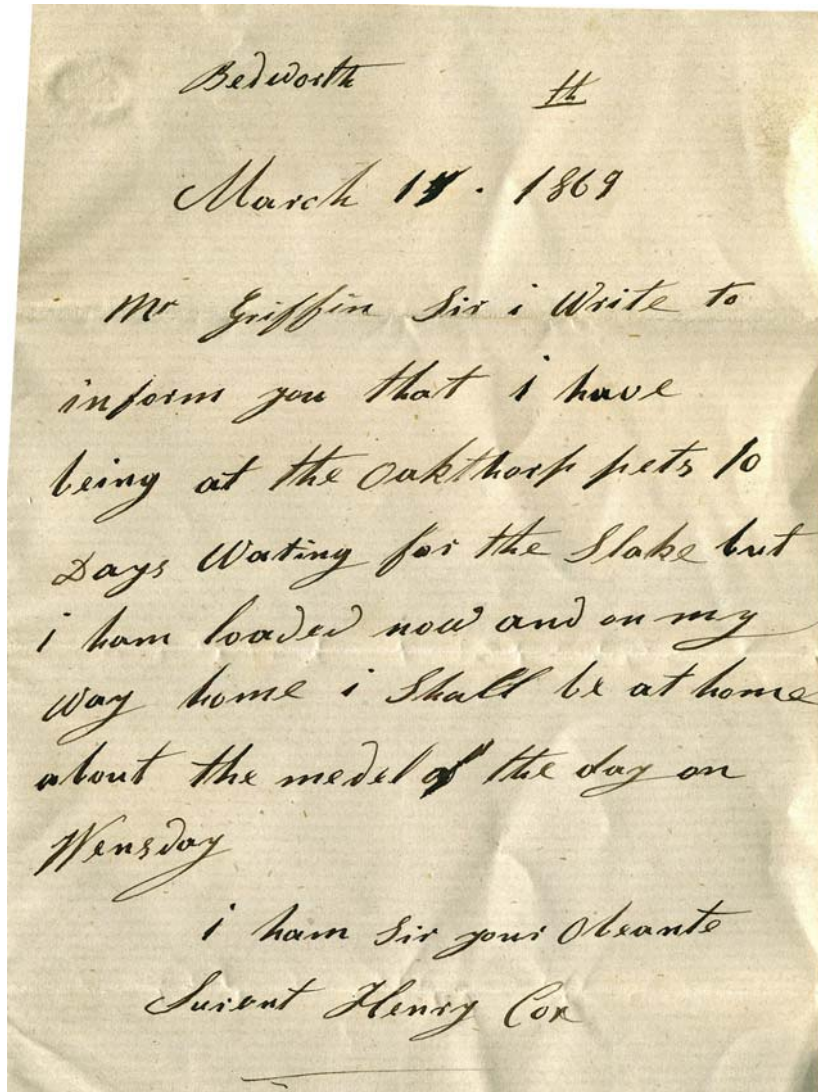 Bedworth th
March 1 . 1869
Mr Griffin Sir i Write to
inform you that i have
being at the Oakthorp pets 10
Days Wating for the Slake but
i ham loaded now and on my
way home i Shall be at home
about the medel of the day on
Wensday
i ham Sir your Obeante
Surant Henry Cox